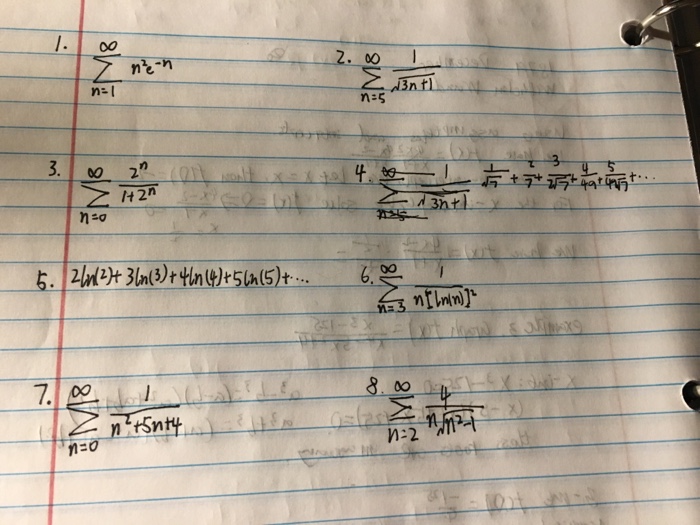 1. ∞ ∑ n=1 n²e⁻ⁿ
2. ∞ ∑ n=5 1/√(3n+1)
3. ∞ ∑ n=0 2ⁿ/(1+2ⁿ)
4. 1/√7 + 2/7 + 3/(7√7) + 4/49 + 5/(49√7) + ...
5. 2ln(2)+ 3ln(3)+4ln(4)+5ln(5)+...
6. ∞ ∑ n=3 1/(n[ln(n)]²)
7. ∞ ∑ n=0 1/(n²+5n+4)
8. ∞ ∑ n=2 4/(n√(n²-1))